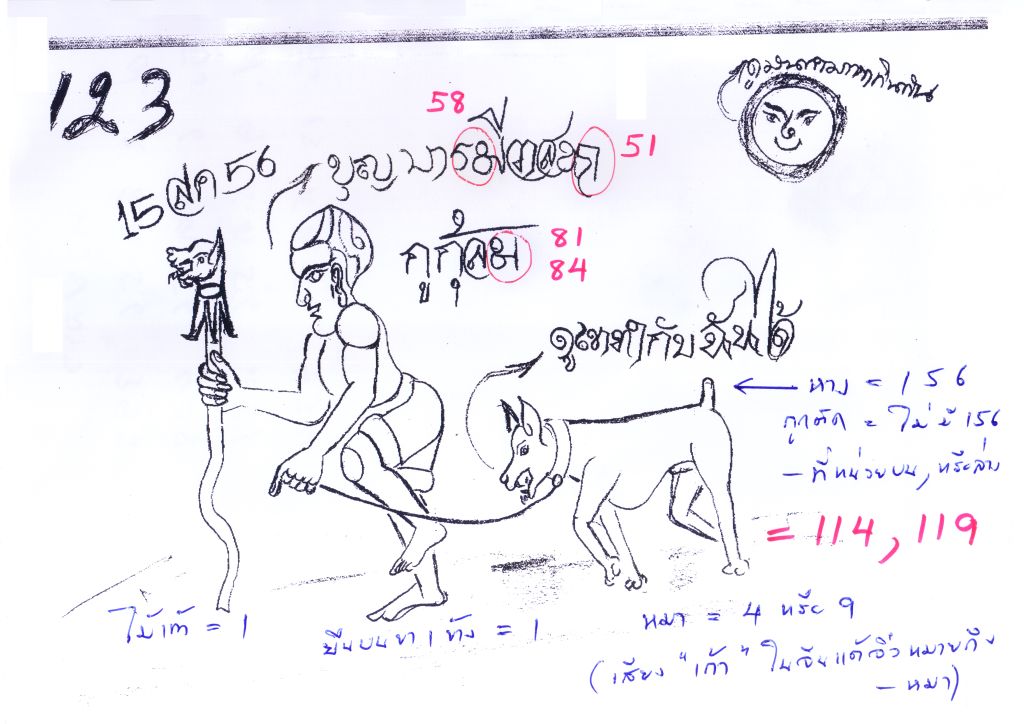 123
ดูมันตามาหากินกัน
58
บุญบารมีอาสมคุ
51
15 สค 56
กูกุ้ลม
81
84
ดูเขาทำกับฉันได้
หาง = 156
ถูกตัด = ไม่มี 156
- ที่หน่วยบน, หรือล่าง
= 114, 119
ไม้เท้า = 1
ยืนบนขา 1 ข้าง = 1
หมา = 4 หรือ 9
(เสียง "เก้า" ในจีนแต้จิ๋วหมายถึง
- หมา)